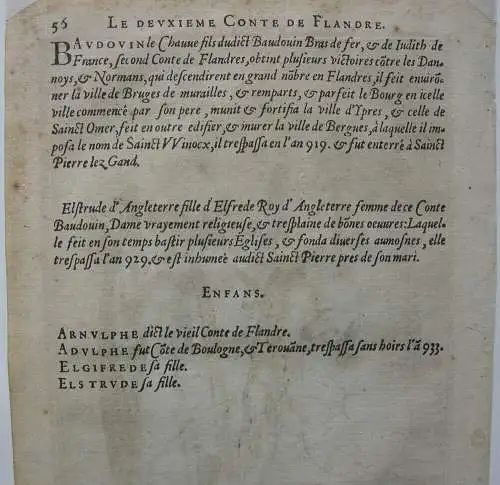 56 LE DEVXIEME CONTE DE FLANDRE.
BAVDOVIN le Chauue fils dudict Baudouin Bras de fer, & de Iudith de
France, second Conte de Flandres, obtint plusieurs victoires cōtre les Dan-
noys, & Normans, qui descendirent en grand nōbre en Flandres, il feit enuirō-
ner la ville de Bruges de murailles, & remparts, & parfeit le Bourg en icelle
ville commencé par son pere, munit & fortifia la ville d'Ypres, & celle de
Sainct Omer, feit en outre edifier, & murer la ville de Bergues, à laquelle il im-
posa le nom de Sainct VVinocx, il trespassa en l'an 919. & fut enterré à Sainct
Pierre lez Gand.
Elstrude d'Angleterre fille d'Elfrede Roy d'Angleterre femme de ce Conte
Baudouin, Dame vrayement religieuse, & tresplaine de bōnes oeuures: Laquel-
le feit en son temps bastir plusieurs Eglises, & fonda diuerses aumosnes, elle
trespassa l'an 929. & est inhumée audict Sainct Pierre pres de son mari.
ENFANS.
ARNVLPHE dict le vieil Conte de Flandre.
ADVLPHE fut Cōte de Boulogne, & Terouāne, trespassa sans hoirs l'ā 933.
ELGIFREDE sa fille.
ELSTRVDE sa fille.